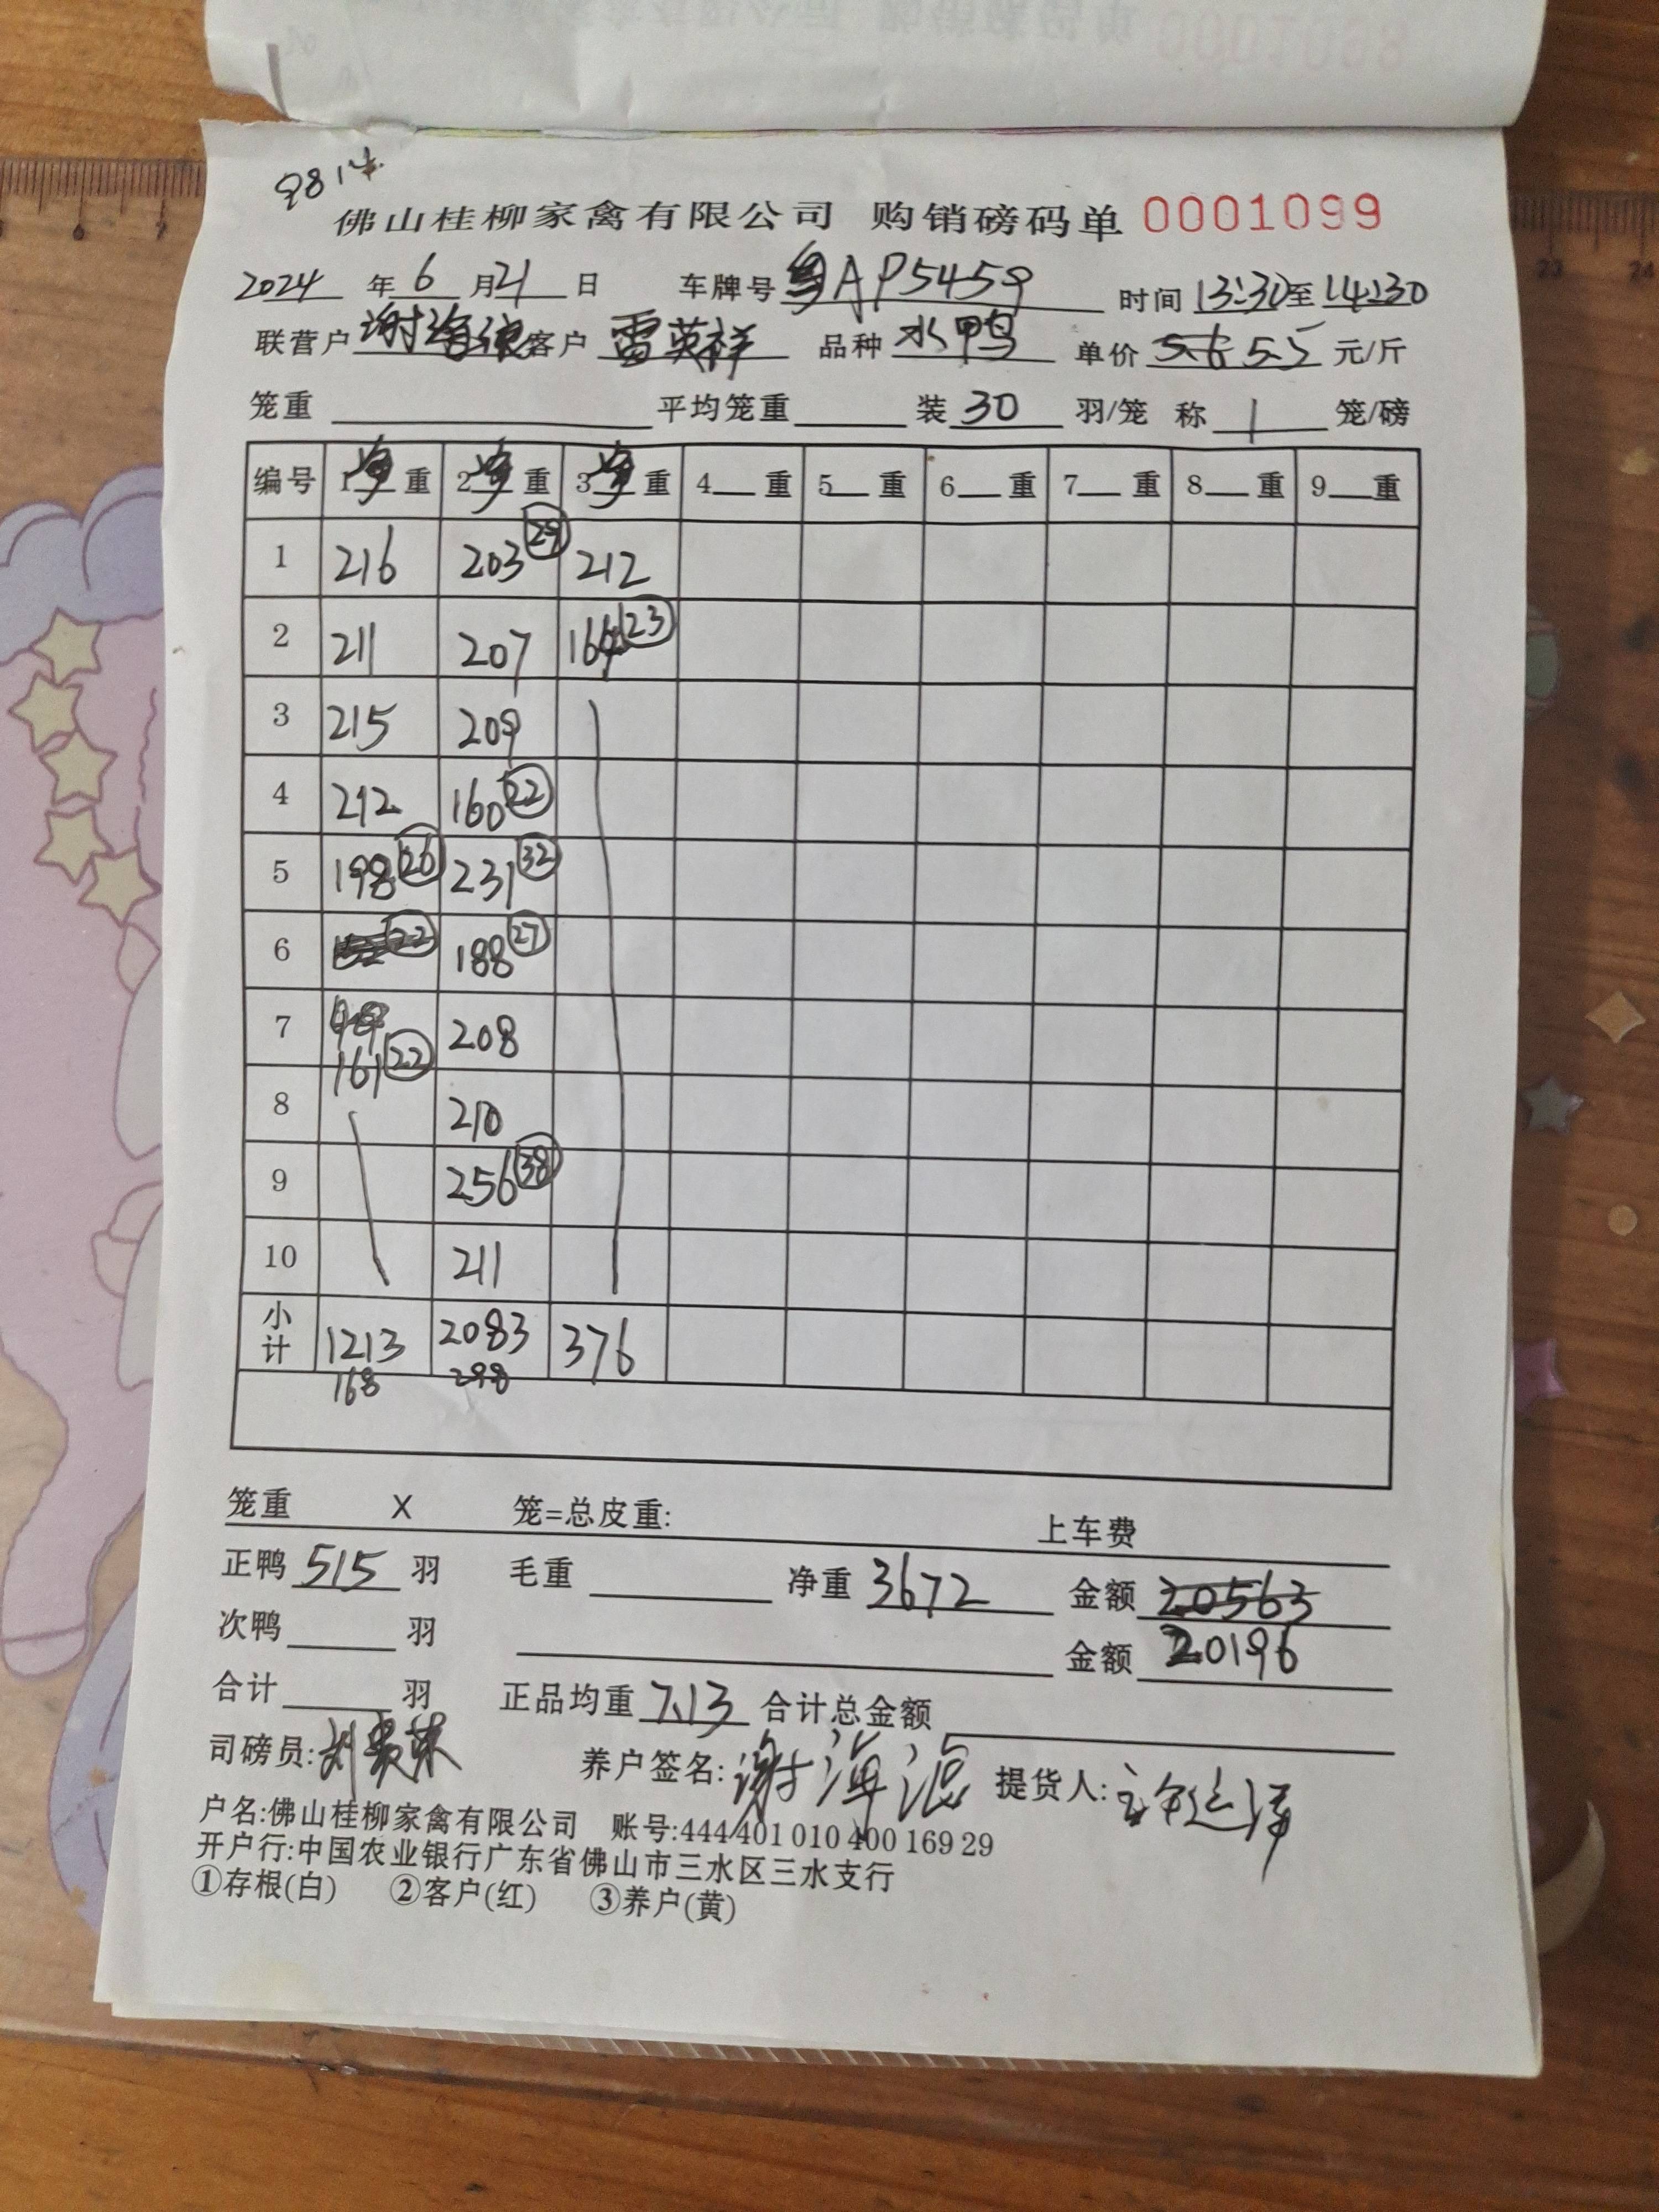 佛山桂柳家禽有限公司 购销磅码单 0001099
2024 年 6 月 21 日 车牌号 粤AP5459 时间 13:30 至 14:30
联营户 谢海浪 客户 雷英祥 品种 水鸭 单价 5.6 5.5 元/斤
笼重 平均笼重 装 30 羽/笼 称 1 笼/磅
编号 1净重 2净重 3净重 4 重 5 重 6 重 7 重 8 重 9 重
1 216 203 29 212
2 211 207 164 23
3 215 209
4 212 160 22
5 198 26 231 32
6 22 188 27
7 208
161 22
8 210
9 256 38
10 211
小计 1213 2083 376
168 298
笼重 X 笼=总皮重: 上车费
正鸭 515 羽 毛重 净重 3672 金额 20563
次鸭 羽 金额 20196
合计 羽 正品均重 7.13 合计总金额
司磅员: 养户签名: 谢海浪 提货人:
户名:佛山桂柳家禽有限公司 账号:444 401 010 400 169 29
开户行:中国农业银行广东省佛山市三水区三水支行
①存根(白) ②客户(红) ③养户(黄)